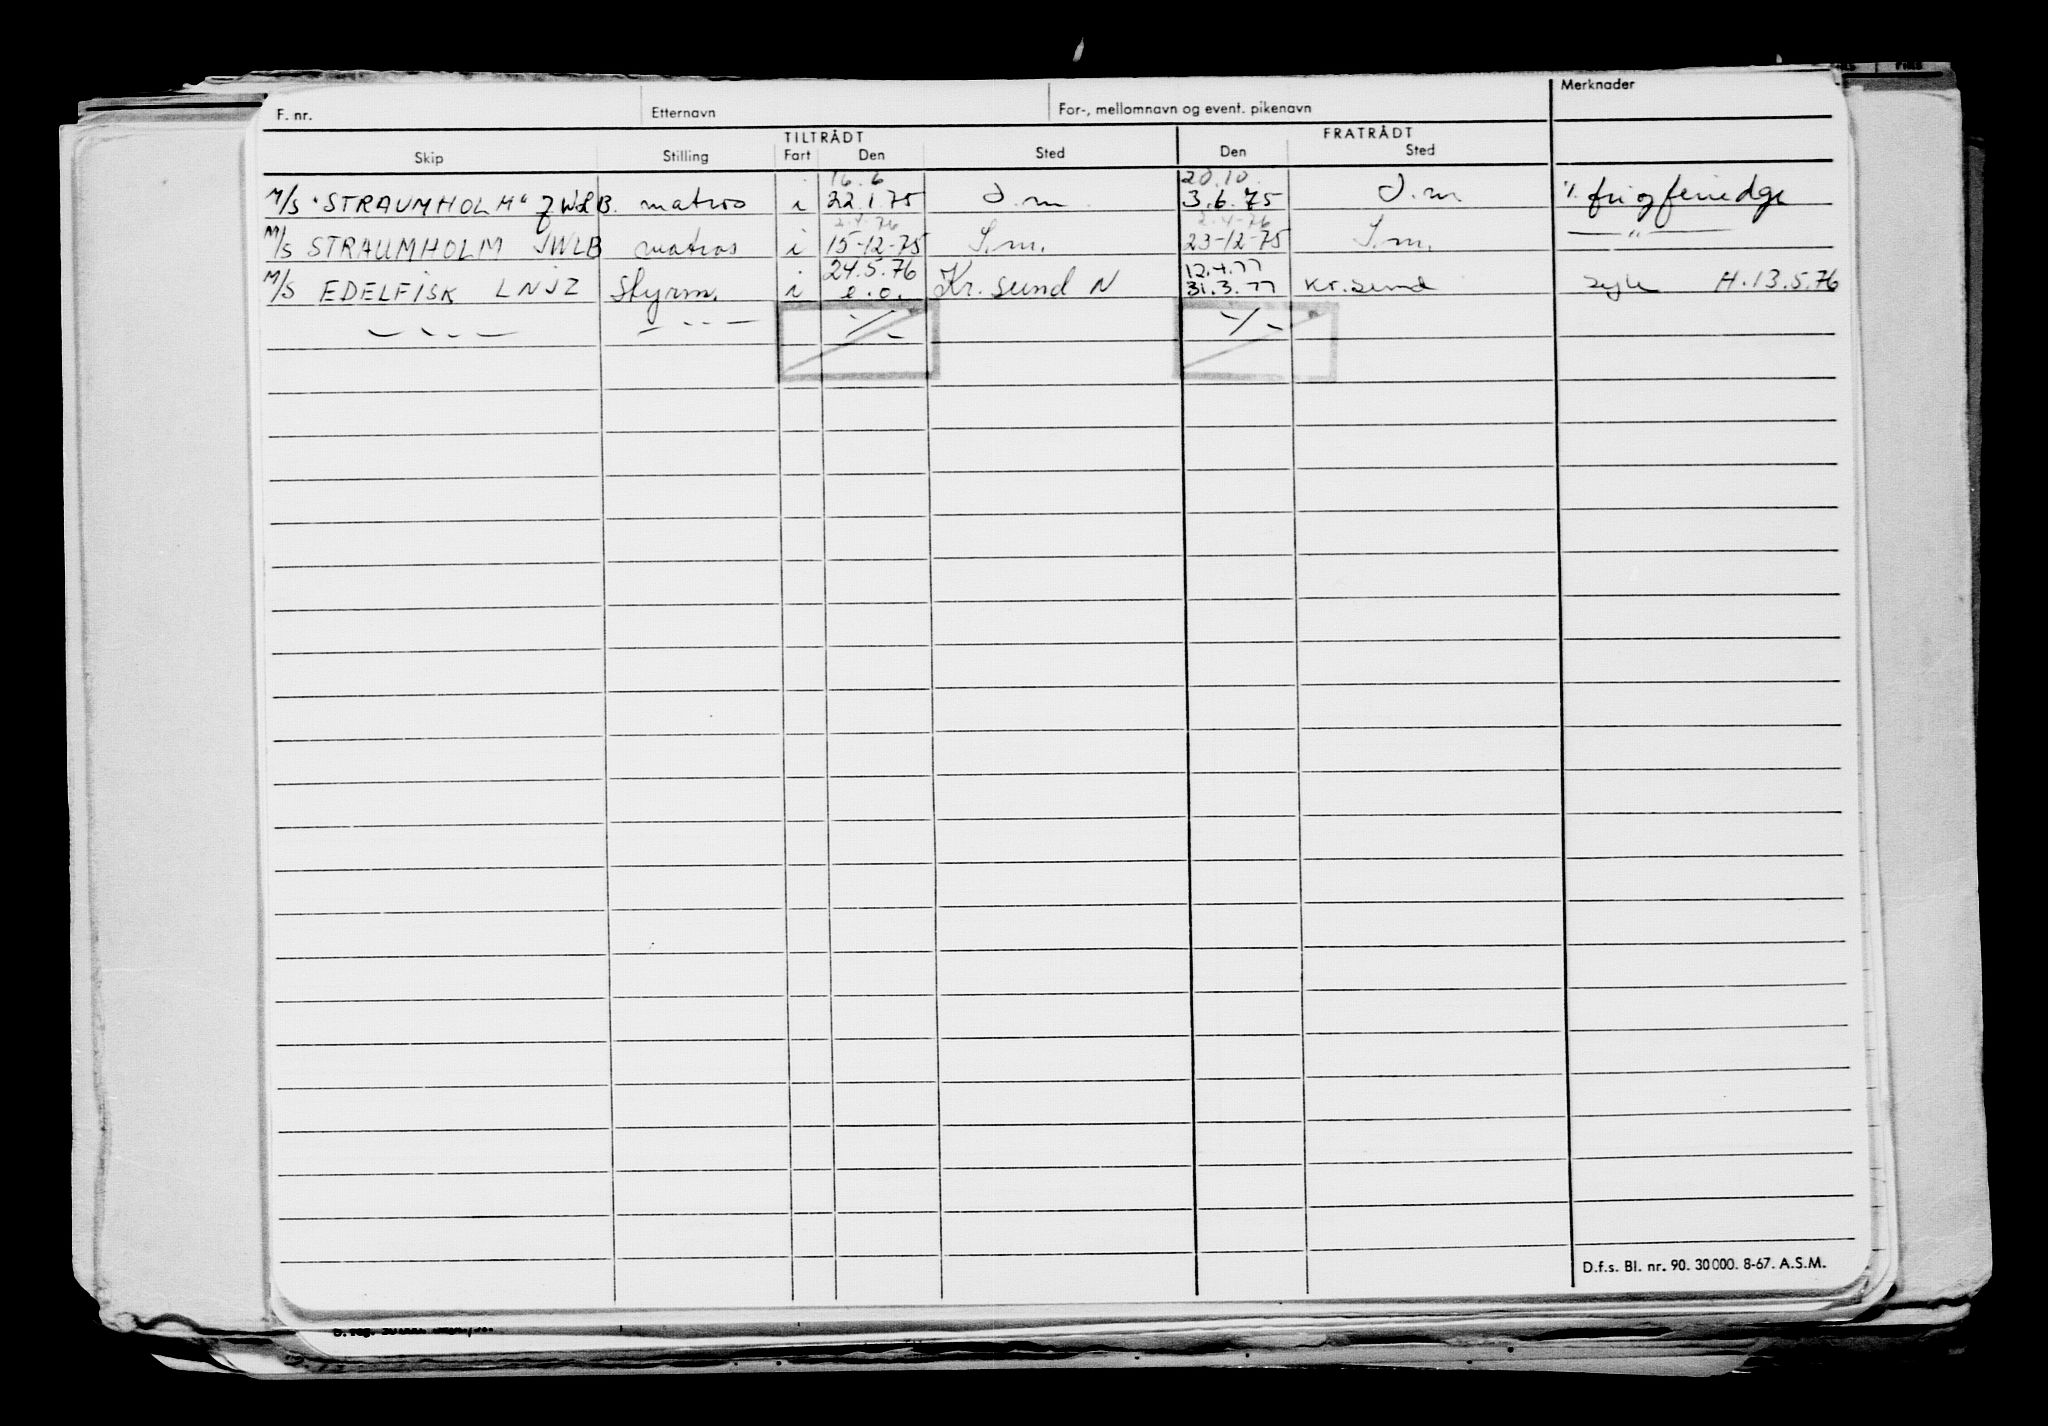 F. nr. Etternavn For-, mellomnavn og event. pikenavn Merknader
TILTRÅDT FRATRÅDT
Skip Stilling Fart Den Sted Den Sted
16.6 20.10.
M/S "STRAUMHOLM" JWLB. matros i 22.1.75 S.m. 3.6.75 S.m.
2.4.76 2.4-76
M/S STRAUMHOLM JWLB matros i 15-12-75 S.m. 23-12-75 S.m. — " —
24.5.76 12.4.77
M/S EDELFISK LNJZ Styrm. i e.o. Kr.sund N 31.3.77 Kr.sund H.13.5.76
D.f.s. Bl. nr. 90. 30000. 8-67. A.S.M.